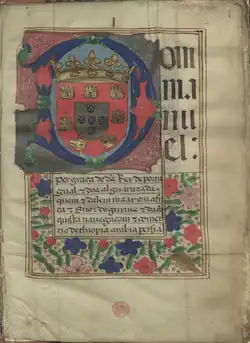 Dom
ma
nu
el:
Per graça de ds Rei de portu
gual & dos alguarues da
quem & dalem maar em afri
ca & Snor de guinee & da con
quista navegaçam & comer
cio dethiopia arabia persia